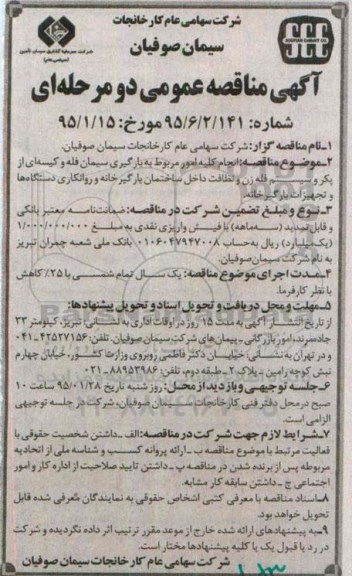 شرکت سهامی عام کارخانجات
سیمان صوفیان
شرکت سرمایه گذاری سیمان تامین
(سهامی عام)
SOUFIAN CEMENT CO.
آگهی مناقصه عمومی دو مرحله‌ای
شماره: ۹۵/۶/۲/۱۴۱ مورخ: ۹۵/۱/۱۵
۱ـ نام مناقصه گزار: شرکت سهامی عام کارخانجات سیمان صوفیان.
۲ـ موضوع مناقصه: انجام کلیه امور مربوط به بارگیری سیمان فله و کیسه‌ای از
پکر و سیستم فله زن و نظافت داخل ساختمان بارگیرخانه و روانکاری دستگاه‌ها
و تجهیزات بارگیرخانه.
۳ـ نوع و مبلغ تضمین شرکت در مناقصه: ضمانت‌نامه معتبر بانکی
و قابل تمدید (سه‌ماهه) یا فیش واریزی نقدی به مبلغ ۱/۰۰۰/۰۰۰/۰۰۰
(یک‌میلیارد) ریال به‌حساب ۰۱۰۶۰۴۷۹۴۷۰۰۸ بانک ملی شعبه چمران تبریز
به نام شرکت سیمان صوفیان.
۴ـ مدت اجرای موضوع مناقصه: یک سال تمام شمسی با ۲۵٪ کاهش
با نظر کارفرما.
۵ـ مهلت و محل دریافت و تحویل اسناد و تحویل پیشنهادها:
از تاریخ انتشار آگهی به مدت ۱۵ روز در اوقات اداری به نشانی: تبریز، کیلومتر ۳۳
جاده مرند، امور بازرگانی ـ پیمان‌های شرکت سیمان صوفیان. تلفن: ۴۲۵۲۷۱۵۶-۰۴۱
و در تهران به نشانی: خیابان دکتر فاطمی، روبروی وزارت کشور، خیابان چهارم
نبش کوچه رامین ـ پلاک ۲ ـ طبقه دوم، تلفن: ۸۸۹۵۳۹۸۶ - ۰۲۱
۶ـ جلسه توجیهی و بازدید از محل: روز شنبه تاریخ ۹۵/۰۱/۲۸ ساعت ۱۰
صبح در محل دفتر فنی کارخانجات سیمان صوفیان، شرکت در جلسه توجیهی
الزامی است.
۷ـ شرایط لازم جهت شرکت در مناقصه: الف ـ داشتن شخصیت حقوقی با
فعالیت مرتبط با موضوع مناقصه ب ـ ارائه پروانه کسب و شناسه ملی از اتحادیه
مربوطه پس از برنده شدن در مناقصه پ ـ داشتن تایید صلاحیت از اداره کار و امور
اجتماعی ج ـ داشتن سابقه کار مشابه.
۸ـ اسناد مناقصه با معرفی کتبی اشخاص حقوقی به نمایندگان معرفی شده قابل
تحویل خواهد بود.
۹ـ به پیشنهادهای ارائه شده خارج از موعد مقرر ترتیب اثر داده نگردیده و شرکت
در رد یا قبول یک یا کلیه پیشنهادها مختار است.
شرکت سهامی عام کارخانجات سیمان صوفیان